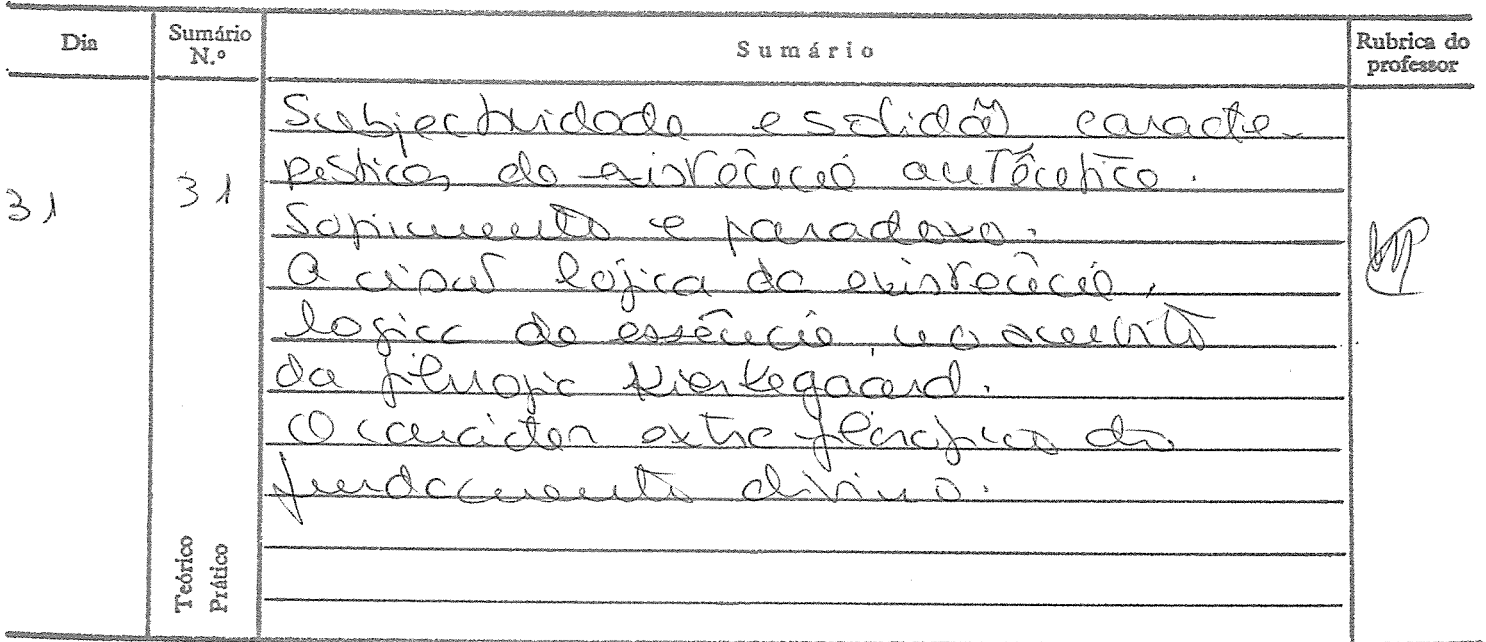 Dia Sumário N.º Sumário Rubrica do professor
31 31
Subjectividade e solidão caracte-
rísticas da existência autêntica.
Sofrimento e paradoxo.
A cisão lógica da existência,
lógica da essência, no
da filosofia Kierkegaard.
O carácter extra filosófico do
fundamento divino.
Teórico
Prático